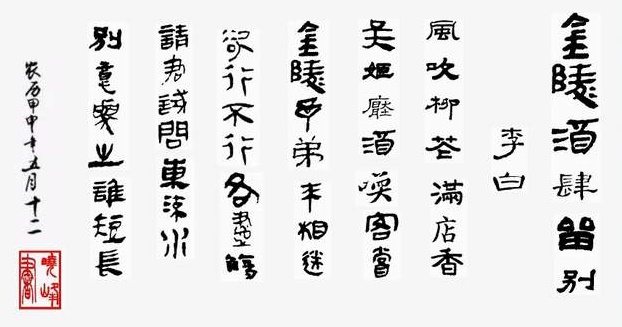 金陵酒肆留别
李白
風吹柳花滿店香
吴姬壓酒喚客嘗
金陵子弟来相送
欲行不行各盡觴
請君試問東流水
别意與之誰短長
农历甲申年五月十二
曉峰